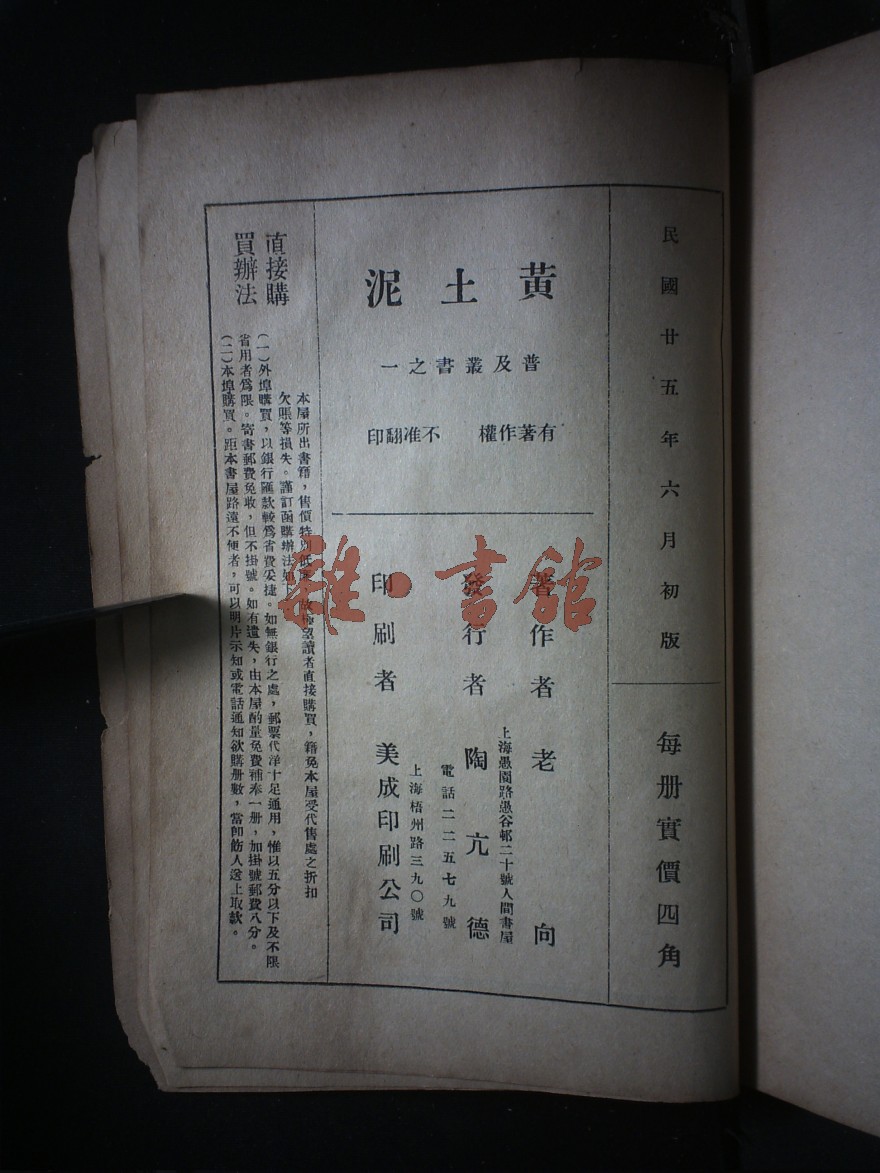 民國廿五年六月初版
每册實價四角
黃土泥
普及叢書之一
有著作權 不准翻印
著作者 老向
上海愚園路愚谷邨二十號人間書屋
發行者 陶亢德
電話二二五七九號
上海梧州路三九〇號
印刷者 美成印刷公司
直接購
買辦法
本屋所出書籍，售價特別低，故極望讀者直接購買，藉免本屋受代售處之折扣
欠賬等損失。謹訂函購辦法如
(一)外埠購買，以銀行匯款較爲省費妥捷。如無銀行之處，郵票代洋十足通用，惟以五分以下及不限
省用者爲限。寄書郵費免收，但不掛號。如有遺失，由本屋酌量免費補奉一册，加掛號郵費八分。
(二)本埠購買。距本書屋路遠不便者，可以明片示知或電話通知欲購册數，當卽飭人送上取款。
雜·書館